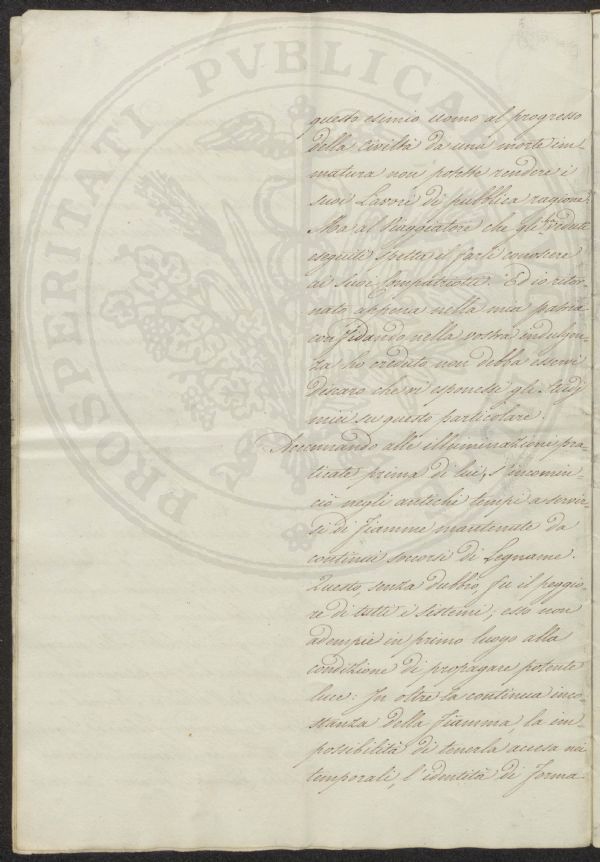 PROSPERITATI PVBLICAE
questo esimio uomo al progresso
della civiltà da una morte im-
matura non potette rendere i
suoi Lavori di pubblica ragione.
Ma al Viaggiatore che gli à veduti
eseguiti spetta il farli conoscere
ai suoi Compatriotti. Ed io ritor-
nato appena nella mia patria
confidando nella vostra indulgen-
za ho creduto non debba esservi
discaro che vi esponessi gli studj
miei su questo particolare.
Accennando alle illuminazioni pra-
ticate prima di lui, s'incomin-
ciò negli antichi tempi a servir-
si di fiamme mantenute da
continui soccorsi di Legname.
Questo, senza dubbio, fu il peggio-
re di tutti i sistemi; esso non
adempie in primo luogo alla
condizione di propagare potente
luce: In oltre la continua inco-
stanza della fiamma, la im-
possibilità di tenerla accesa nei
temporali, l'identità di forma